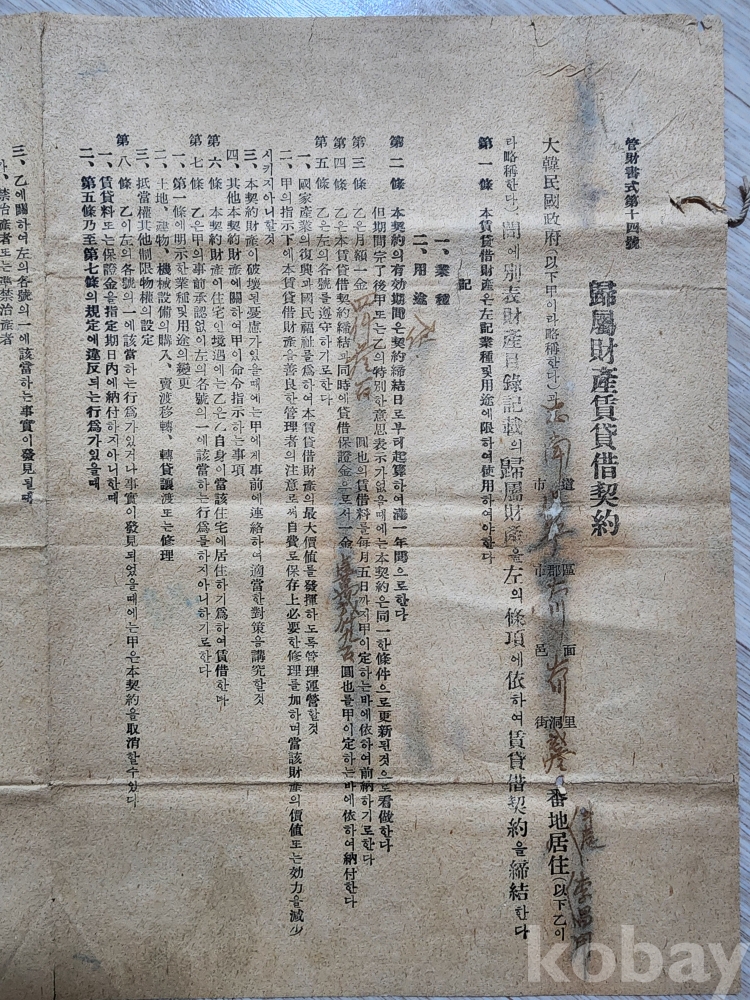 管財書式第十四號
歸屬財產賃貸借契約
大韓民國政府(以下甲이라略稱한다)과 忠南 道市 區郡市 面邑 里洞街 番地居住(以下乙이
라略稱한다)間에別表財產目錄記載의歸屬財產을左의條項에依하여賃貸借契約을締結한다
第一條 本賃貸借財產은左記業種及用途에限하여使用하여야한다
記
一、業種
二、用途
第二條 本契約의有效期間은契約締結日로부터起算하여滿一年間으로한다
但期間完了後甲또는乙의特別한意思表示가없을때에는本契約은同一한條件으로更新된것으로看做한다
第三條 乙은月額一金 圓也의賃借料를每月五日까지甲이定하는바에依하여前納하기로한다
第四條 乙은本賃貸借契約締結과同時에賃借保證金으로서一金 圓也를甲이定하는바에依하여納付한다
第五條 乙은左의各號를遵守하기로한다
一、國家產業의復興과國民福祉를爲하여本賃貸借財產의最大價値를發揮하도록管理運營할것
二、甲의指示下에本賃貸借財產을善良한管理者의注意로써自費로保存上必要한修理를加하며當該財產의價値또는效力을減少
시키지아니할것
三、本契約財產이破壞된憂慮가있을때에는甲에게事前에連絡하여適當한對策을講究할것
四、其他本契約財產에關하여甲이命令指示하는事項
第六條 本契約財產이住宅인境遇에는乙은乙自身이當該住宅에居住하기爲하여賃借한다
第七條 乙은甲의事前承認없이左의各號의一에該當하는行爲를하지아니하기로한다
一、第一條에明示한業種及用途의變更
二、土地、建物、機械設備의購入、賣渡移轉、轉貸讓渡또는修理
三、抵當權其他制限物權의設定
第八條 乙이左의各號의一에該當하는行爲가있거나事實이發見되었을때에는甲은本契約을取消할수있다
一、賃貸料또는保證金을指定期日內에納付하지아니한때
二、第五條乃至第七條의規定에違反되는行爲가있을때
三、乙에關하여左의各號의一에該當하는事實이發見될때
가、禁治產者또는準禁治產者
kobay